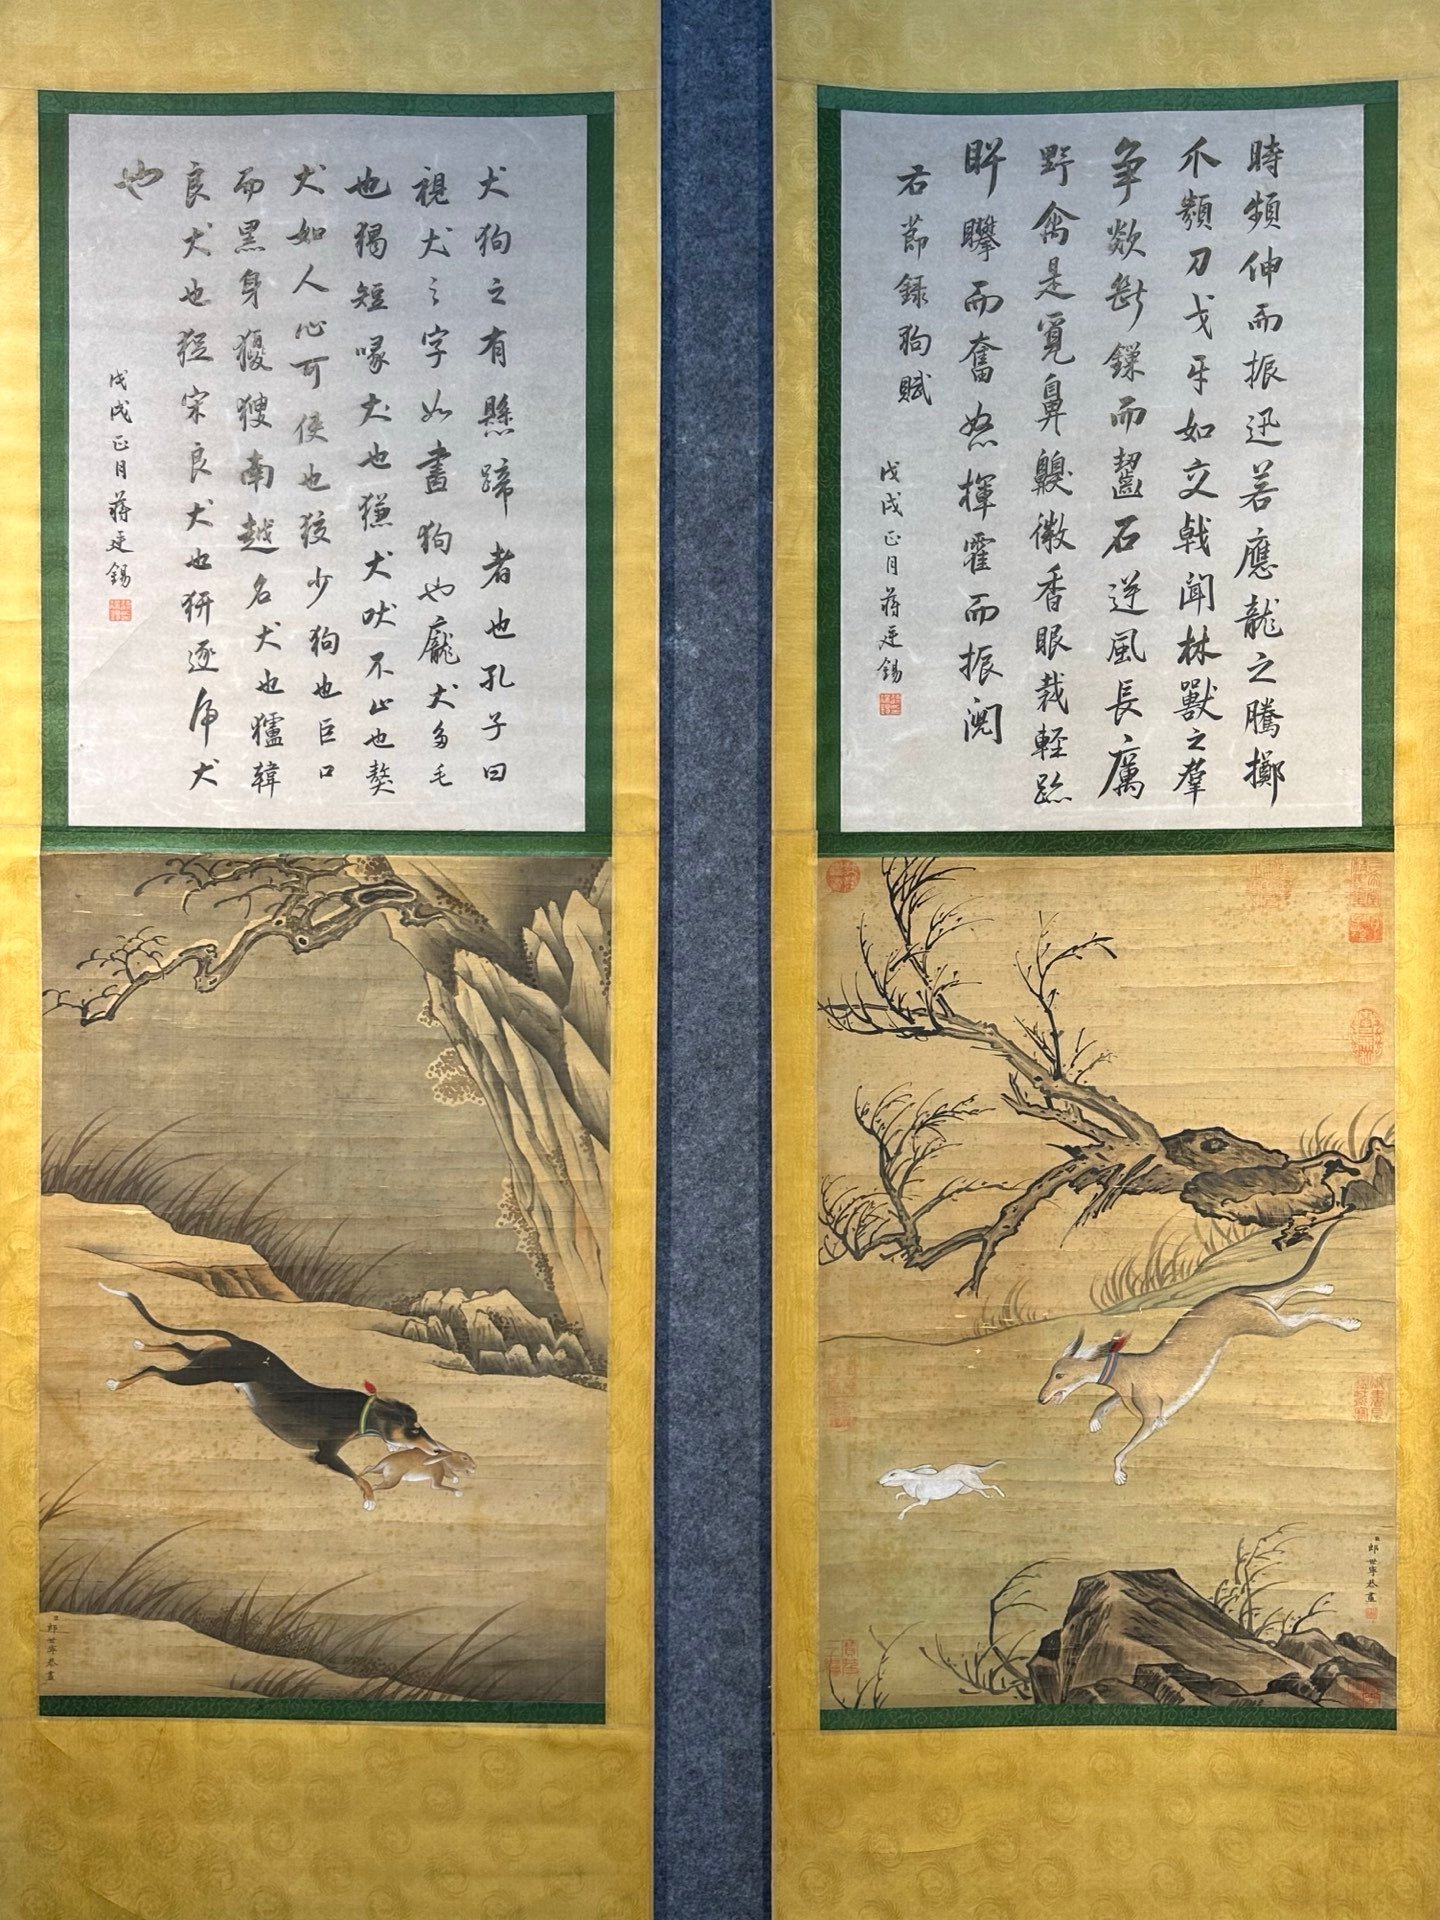 時頻伸而振迅若應龍之騰擲
爪類刀戈牙如交戟聞林獸之群
争欻斷鏁而齧石逆風長厲
野禽是覓鼻齅微香眼裁輕跡
而奮怒揮霍而振
右節録狗賦
戊戌正月蒋廷錫
臣郎世寧恭畫
犬狗之有懸蹄者也孔子曰
視犬之字如畫狗也龐犬多毛
也猲短喙犬也㺌犬吠不止也獒
犬如人心可使也狡少狗也巨口
而黑身獿獀南越名犬也獹韓
良犬也宋良犬也逐虎犬
也
戊戌正月蒋廷錫
臣郎世寧恭畫